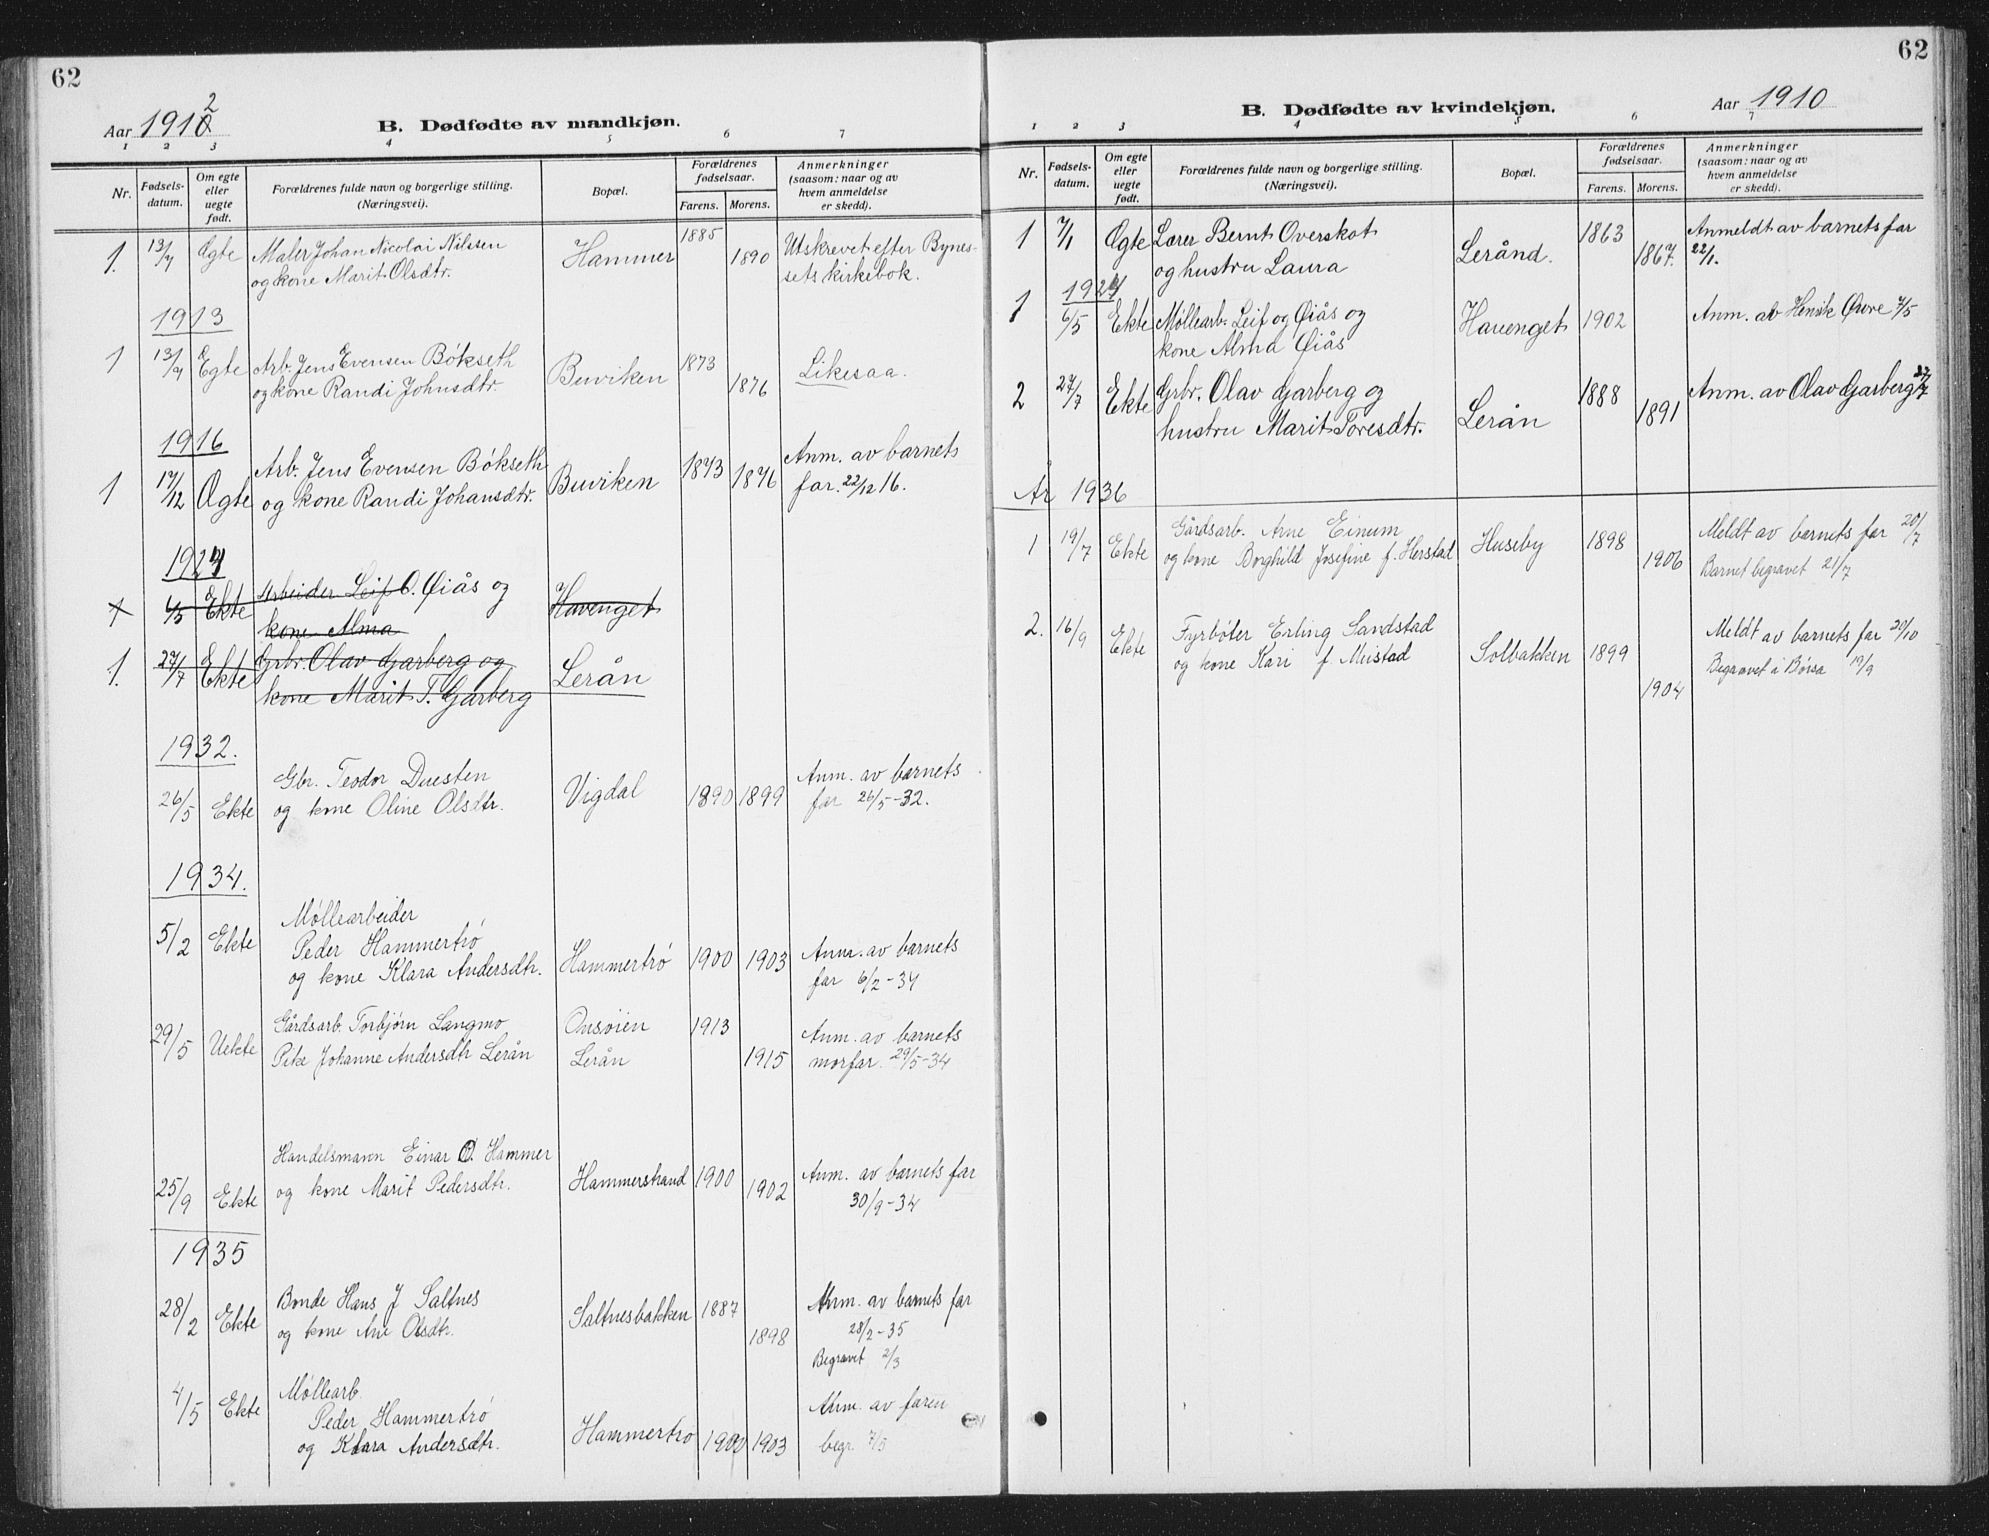 62
Aar 1912
B. Dødfødte av mandkjøn.
1 2 3 4 5 6 7
Nr.
Fødsels-datum.
Om egte eller uegte født.
Forældrenes fulde navn og borgerlige stilling. (Næringsvei).
Bopæl.
Forældrenes fødselsaar.
Farens. Morens.
Anmerkninger (saasom: naar og av hvem anmeldelse er skedd).
1. 13/7 Ægte Maler Johan Nicolai Nilssen Hammer 1885 1890 Utskrevet efter Bynes-
og kone Marit Olsdtr. sets kirkebok.
1913
1 13/9 Egte Arb. Jens Evensen Bökseth Buviken 1873 1876 Likesaa.
og kone Randi Johnsdtr.
1916
1 17/12 Ægte Arb. Jens Evensen Bökseth Buviken 1873 1876 Anm. av barnets
og kone Randi Johansdtr. far. 22/12 16.
1924
6/5 Ekte Arbeider Leif O. Øiås og Havenget
kone Alma
1. 27/7 Ekte Grbr. Olav Garberg og Lerån
kone Marit T. Garberg
1932.
26/5 Ekte Gbr. Teodor Duesten Vigdal 1890 1899 Anm. av barnets
og kone Oline Olsdtr. far 26/5-32.
1934.
5/2 Ekte Møllearbeider
Peder Hammertrö Hammertrö 1900 1903 Anm. av barnets
og kone Klara Andersdtr. far 6/2-34
29/5 Uekte Gårdsarb. Torbjørn Langmo Onsöien 1913 Anm. av barnets
Pike Johanne Andersdtr Lerån Lerån 1915 morfar. 29/5-34
25/9 Ekte Handelsmann Einar O. Hammer Hammerstrand 1900 1902 Anm. av barnets far
og kone Marit Pedersdtr. 30/9-34
1935
28/2 Ekte Bonde Hans J Saltnes Saltnesbakken 1887 1898 Anm. av barnets far
og kone Ane Olsdtr. 28/2-35
Begravet 2/3
4/5 Ekte Møllearb.
Peder Hammertrö Hammertro 1900 1903 Anm. av faren
og Klara Andersdtr. begr. 7/5
62
Aar 1910
B. Dødfødte av kvindekjøn.
1 2 3 4 5 6 7
Nr.
Fødsels-datum.
Om egte eller uegte født.
Forældrenes fulde navn og borgerlige stilling. (Næringsvei).
Bopæl.
Forældrenes fødselsaar.
Farens. Morens.
Anmerkninger (saasom: naar og av hvem anmeldelse er skedd).
1 7/1 Ægte Lærer Bernt Overskot Lerånd. 1863 1867. Anmeldt av barnets far
og hustru Laura 22/1.
1924
1 6/5 Ekte Møllearb. Leif og Øiås og Havenget 1902 Anm. av Henrik 7/5
kone Alma Øiås
2 27/7 Ekte Grbr. Olav Garberg og Lerån 1888 1891 Anm. av Olav Garberg 27/7
hustru Marit Toresdtr.
År 1936
1 19/7 Ekte Gårdsarb. Arne Einum Huseby 1898 1906 Meldt av barnets far 20/7
og kone Borghild Josefine f. Herstad Barnet begravet 21/7
2. 16/9 Ekte Fyrböter Erling Sandstad Solbakken 1899 1904 Meldt av barnets far 20/10
og kone Kari f. Meistad Begravet i Börsa 19/9